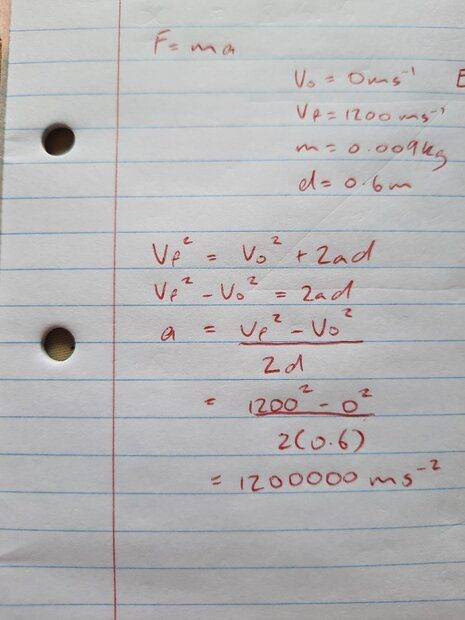 F = ma
V₀ = 0ms⁻¹
V_f = 1200 ms⁻¹
m = 0.009kg
d = 0.6m
V_f² = V₀² + 2ad
V_f² - V₀² = 2ad
a = (V_f² - V₀²) / 2d
= (1200² - 0²) / 2(0.6)
= 1200000 ms⁻²